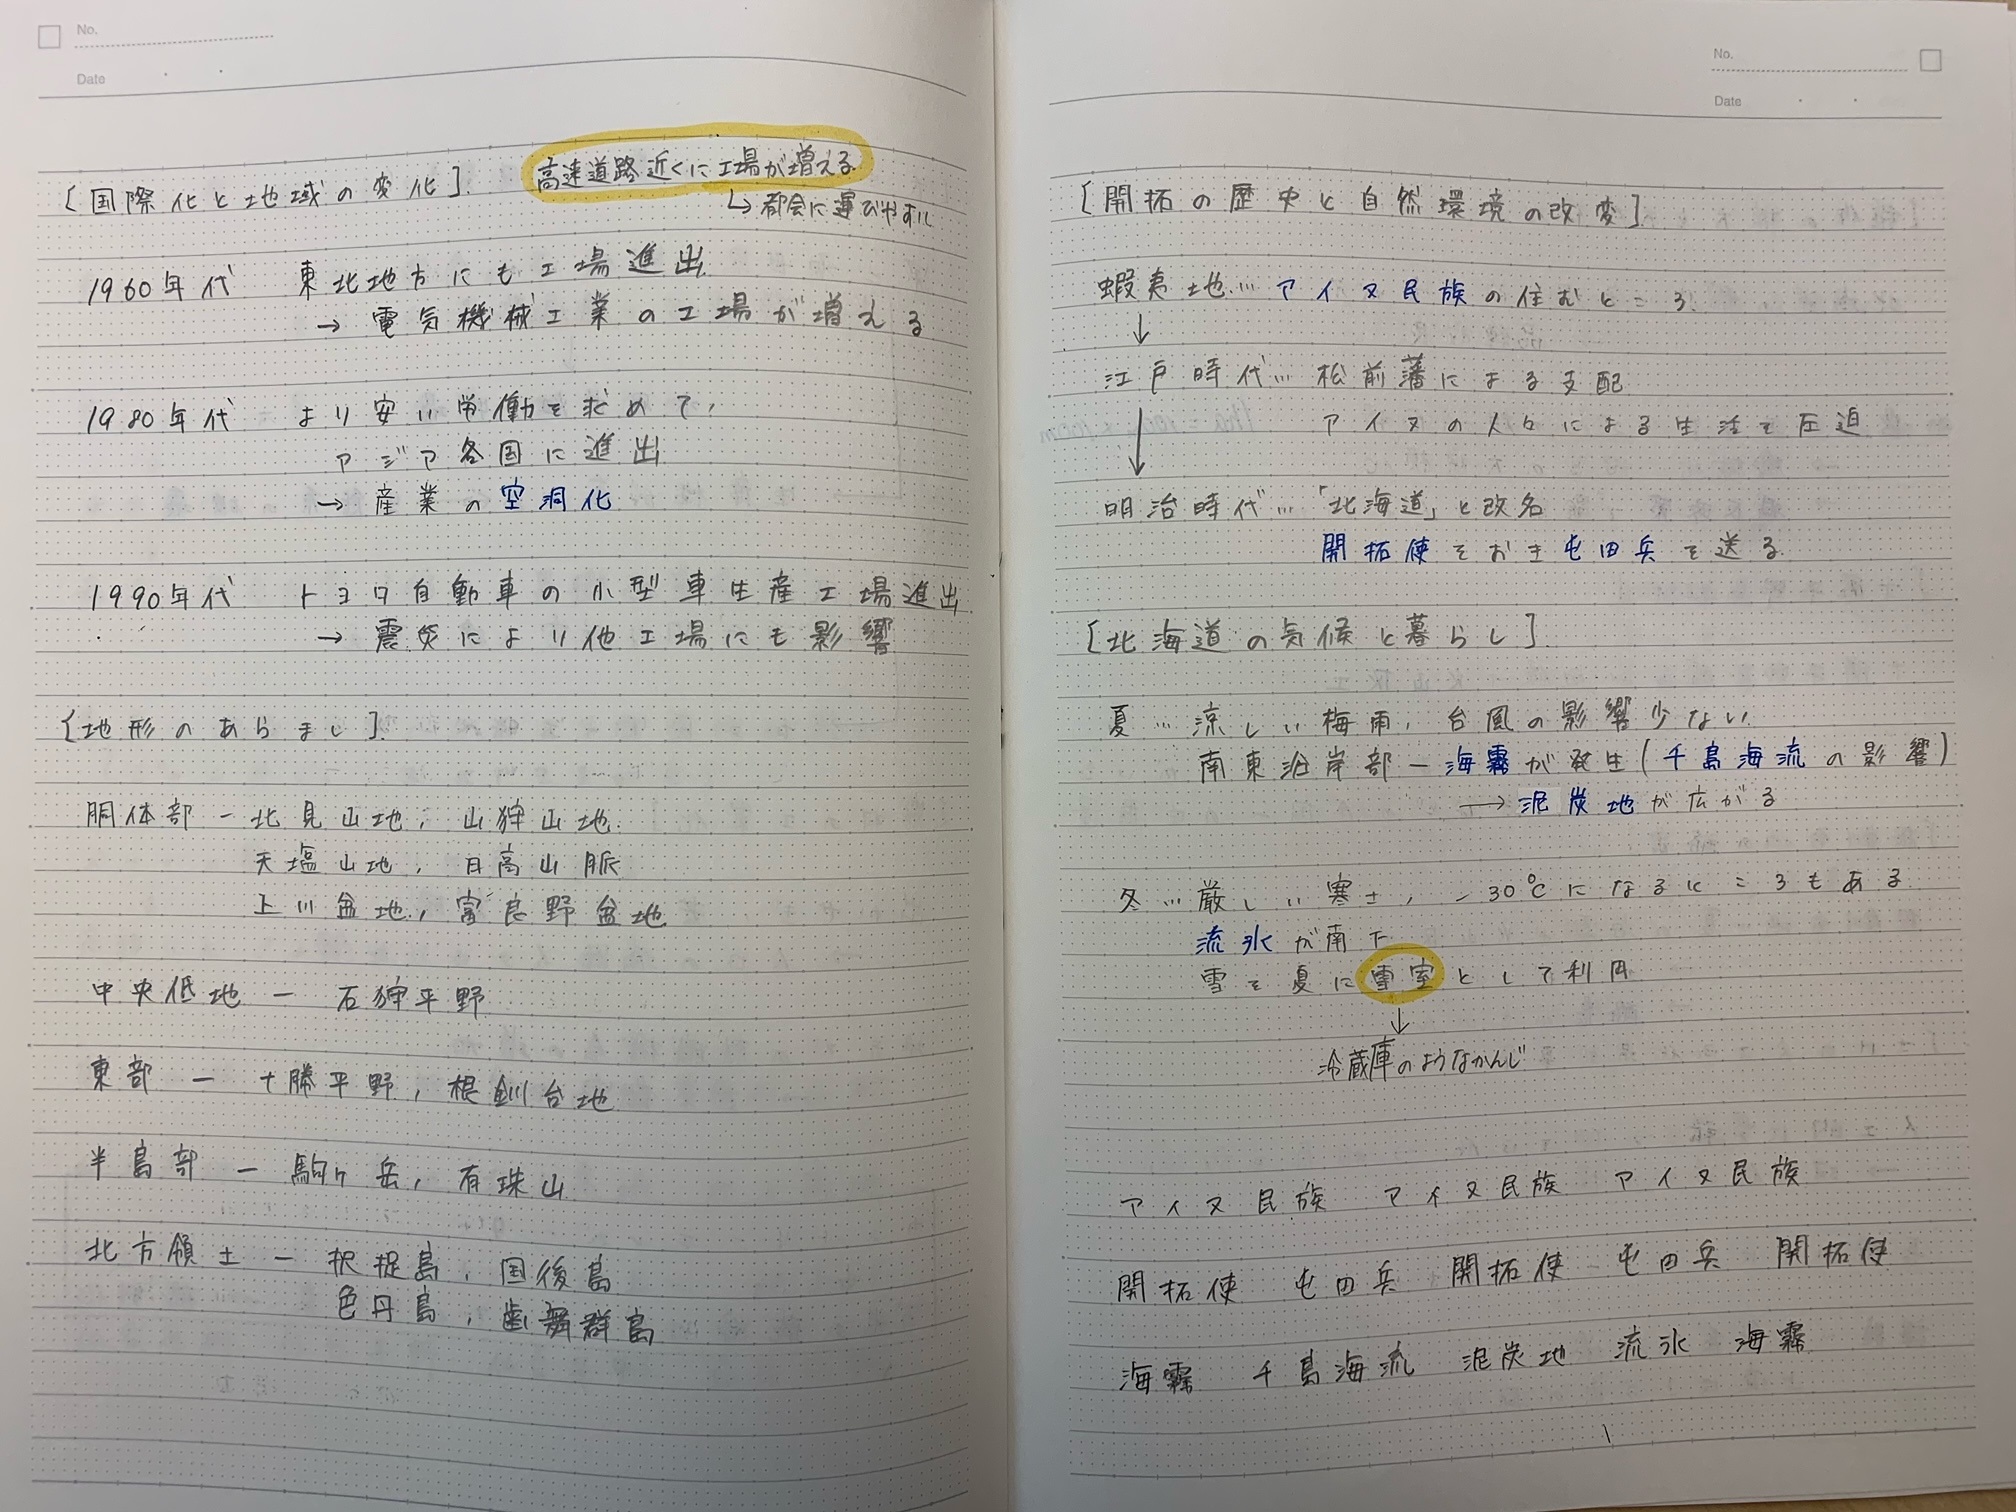 No.
Date
[国際化と地域の変化].
高速道路近くに工場が増える
↳ 都会に運びやすい
1960年代 東北地方にも工場進出
→ 電気機械工業の工場が増える
1980年代 より安い労働を求めて,
アジア各国に進出
→ 産業の空洞化
1990年代 トヨタ自動車の小型車生産工場進出
→ 震災により他工場にも影響
[地形のあらまし].
胴体部 ― 北見山地, 山狩山地.
天塩山地, 日高山脈
上川盆地, 富良野盆地
中央低地 ― 石狩平野
東部 ― 十勝平野, 根釧台地
半島部 ― 駒ヶ岳, 有珠山
北方領土 ― 択捉島, 国後島
色丹島, 歯舞群島
No.
Date
[開拓の歴史と自然環境の改変].
蝦夷地… アイヌ民族の住むところ
↓
江戸時代… 松前藩による支配
アイヌの人々による生活を圧迫
↓
明治時代… 「北海道」と改名
開拓使をおき屯田兵を送る
[北海道の気候と暮らし].
夏… 涼しい梅雨, 台風の影響少ない
南東沿岸部 ― 海霧が発生(千島海流の影響)
→ 泥炭地が広がる
冬… 厳しい寒さ, -30℃になるところもある
流氷が南下
雪を夏に雪室として利用
↓
冷蔵庫のようなかんじ
アイヌ民族 アイヌ民族 アイヌ民族
開拓使 屯田兵 開拓使 屯田兵 開拓使
海霧 千島海流 泥炭地 流氷 海霧